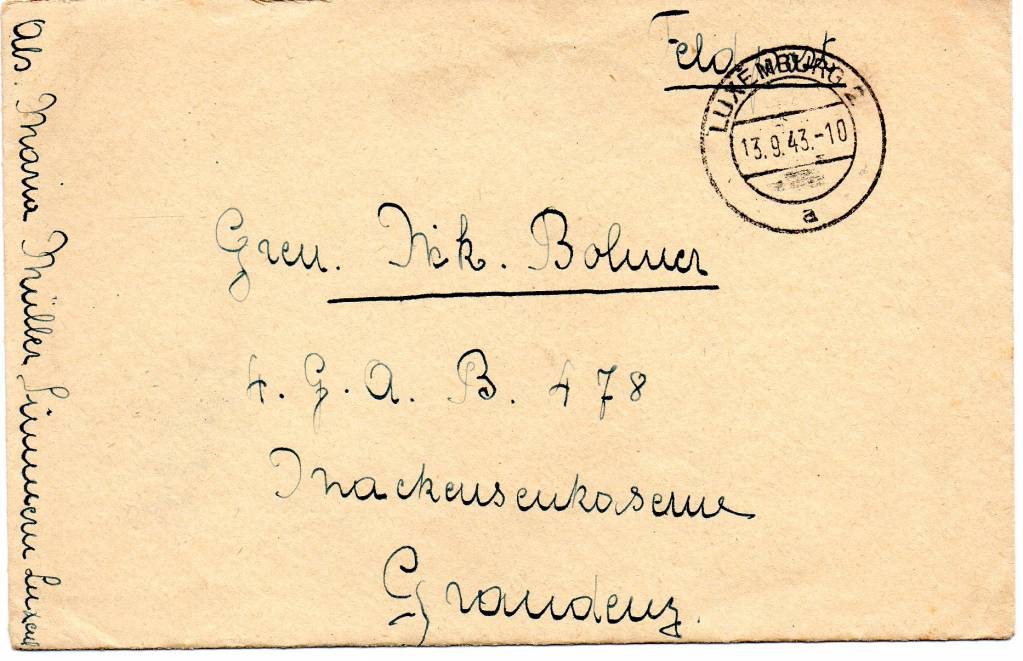 Feldpost
LUXEMBURG 2
13.9.43.-10
a
Gren. Nik. Bolmer
4. G. A. B. 478
Mackensenkaserne
Graudenz.
Abs. Maria Müller Simmern Luxem